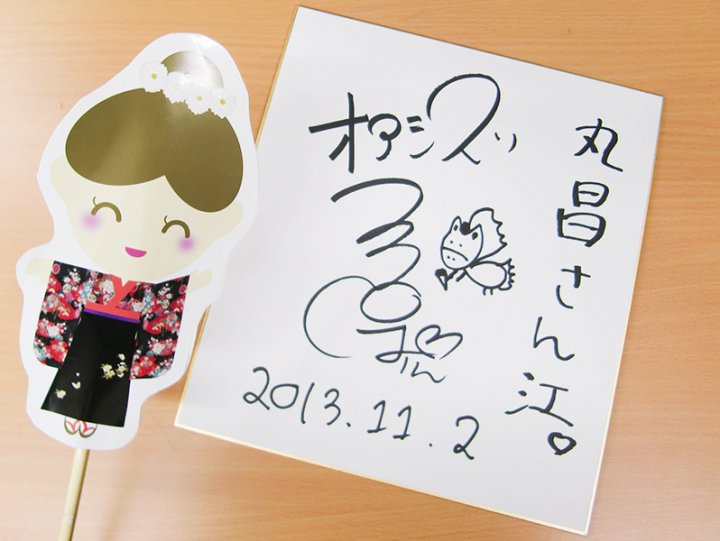 丸昌さん江
オアシズ
2013.11.2